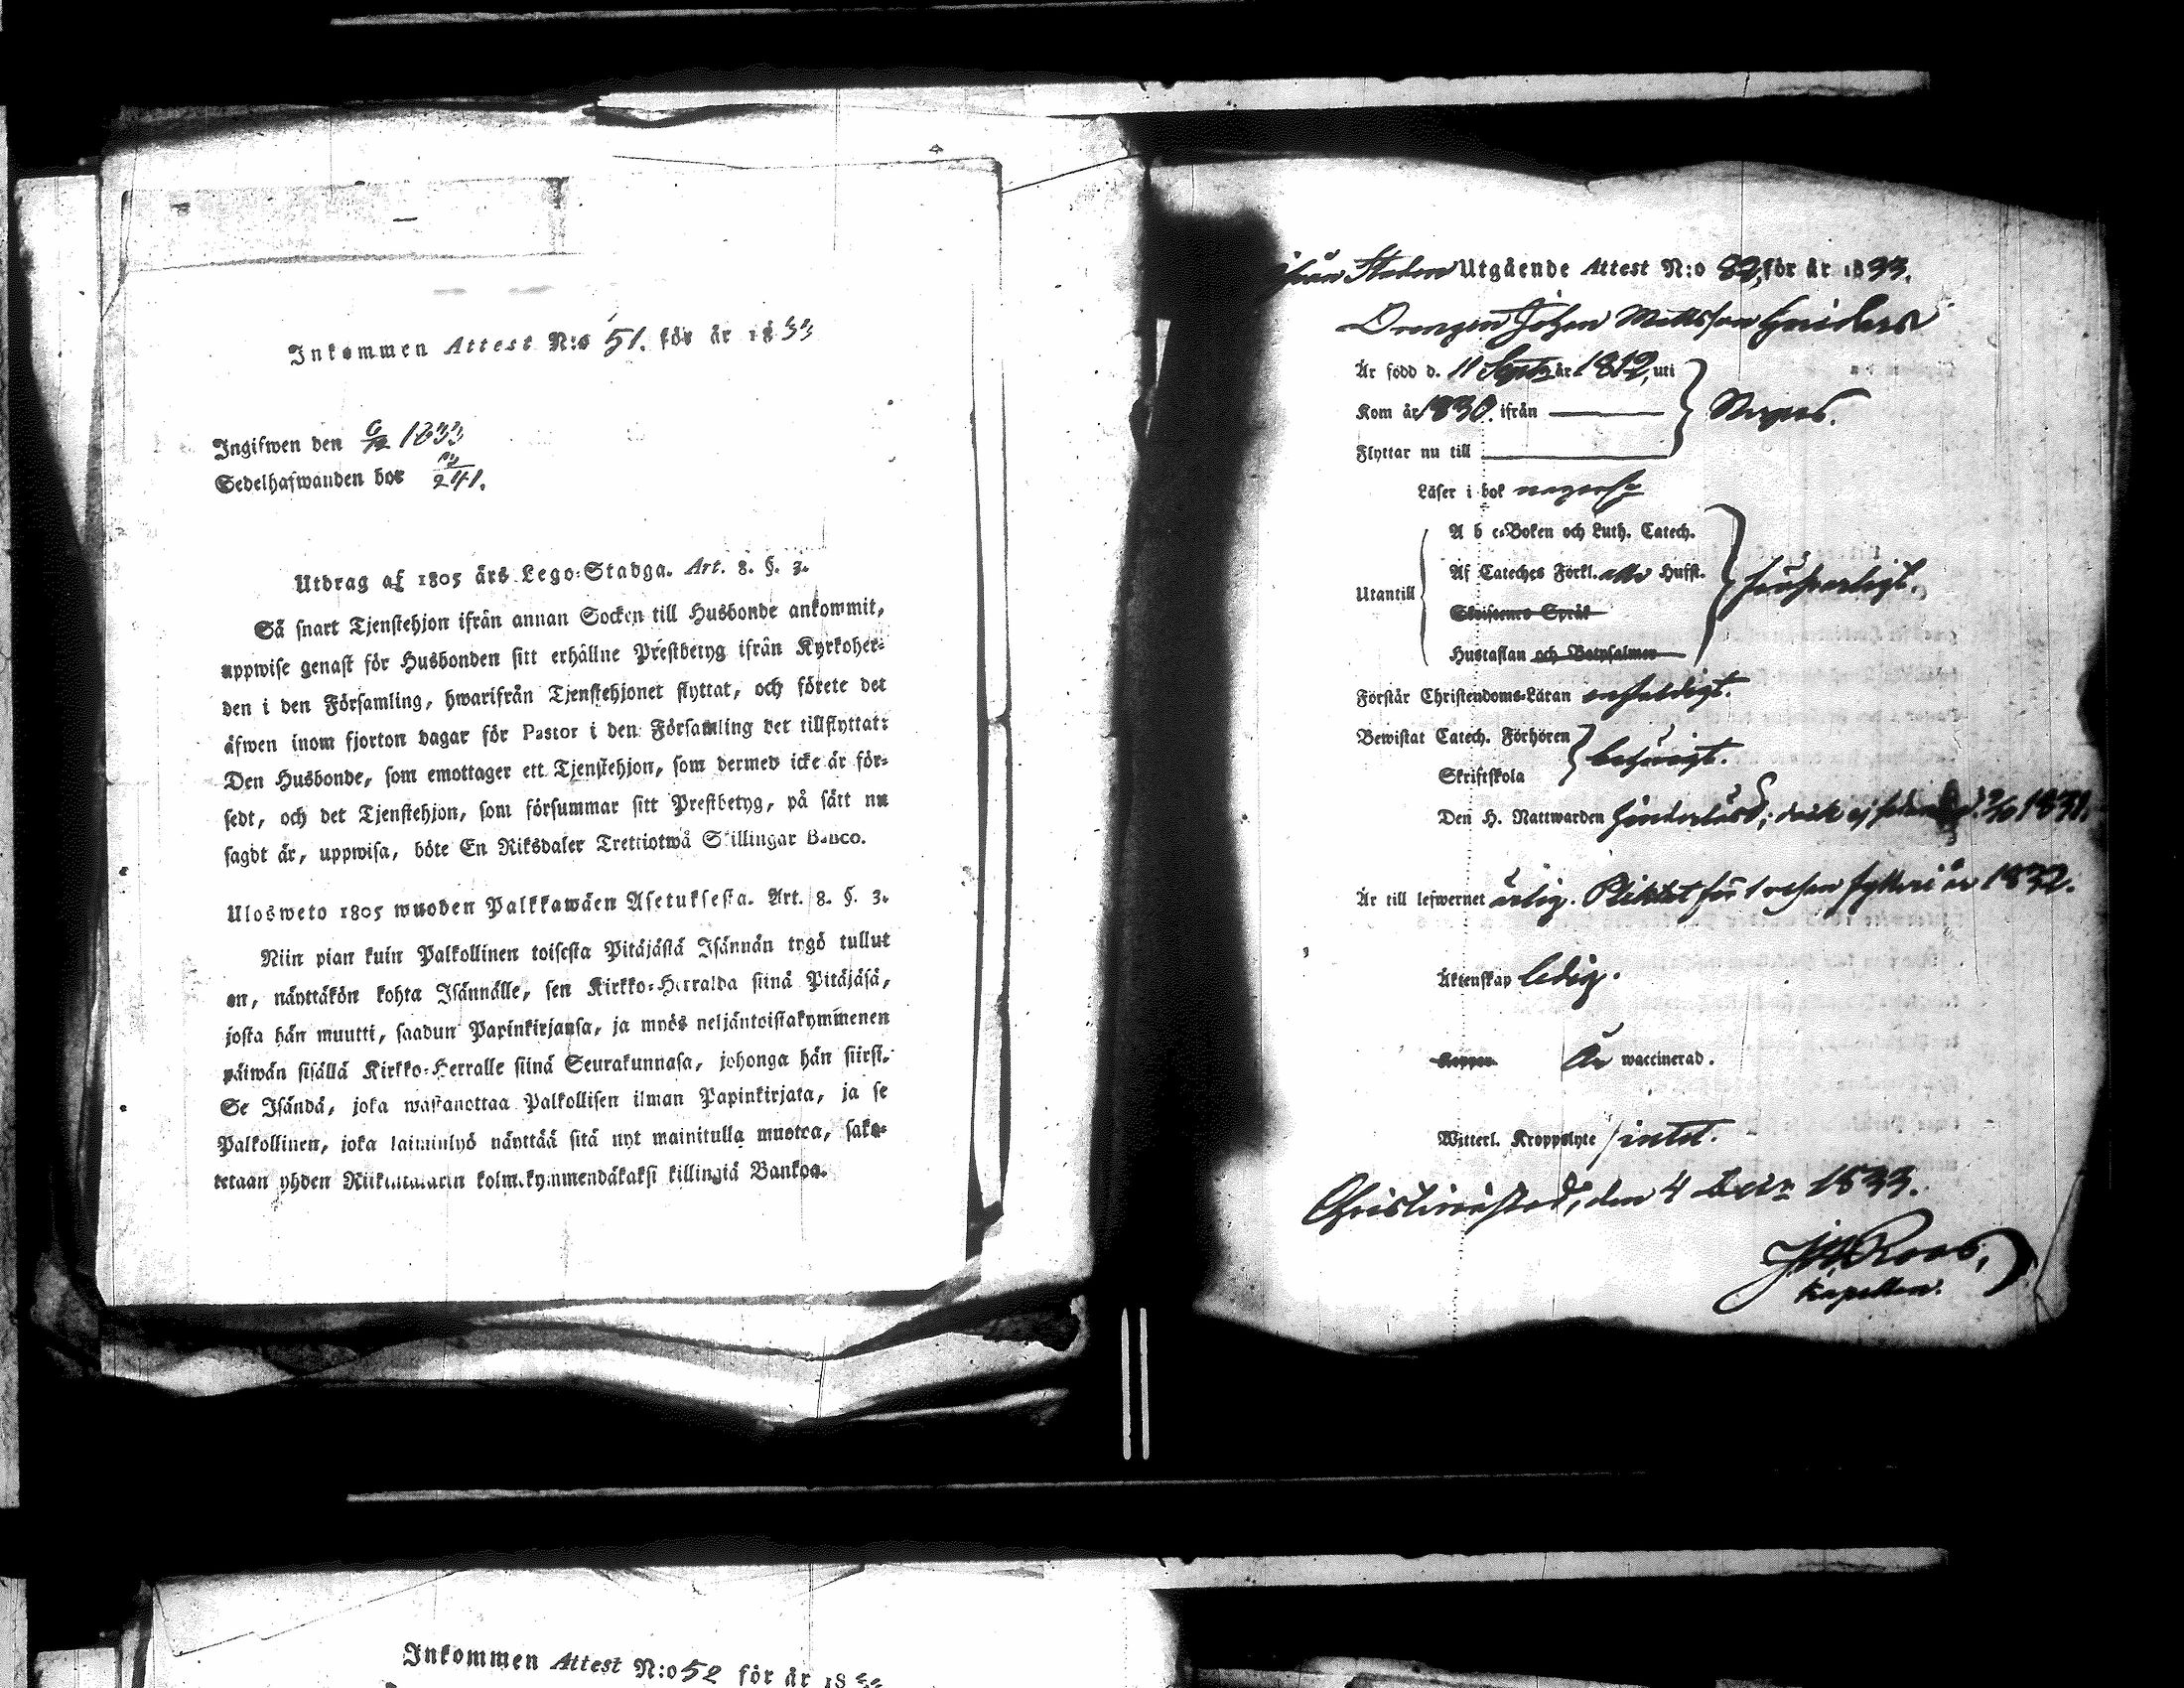 Inkommen Attest N:o 51. för år 1833
Ingifwen den 6/12 1833
Sedelhafwanden bor 241.
Utdrag af 1805 års Lego-Stadga. Art. 8. §. 3.
Så snart Tjenstehjon ifrån annan Socken till Husbonde ankommit,
uppwise genast för Husbonden sitt erhållne Prestbetyg ifrån Kyrkoher-
den i den Församling, hwarifrån Tjenstehjonet flyttat, och förete det
äfwen inom fjorton dagar för Pastor i den Församling det tillflyttat:
Den Husbonde, som emottager ett Tjenstehjon, som dermed icke är för-
sedt, och det Tjenstehjon, som försummar sitt Prestbetyg, på sätt nu
sagdt är, uppwisa, böte En Riksdaler Trettiotwå Skillingar Banco.
Ulosweto 1805 wuoden Palkkawäen Asetuksesta. Art. 8. §. 3.
Niin pian kuin Palkollinen toisesta Pitäjästä Isännän tygö tullut
on, näyttäkön kohta Isännälle, sen Kirkko-Herralda siinä Pitäjäsä,
josta hän muutti, saadun Papinkirjansa, ja myös neljäntoistakymmenen
päiwän sisällä Kirkko-Herralle siinä Seurakunnasa, johonga hän siirst.
Se Isändä, joka wastanottaa Palkollisen ilman Papinkirjata, ja se
Palkollinen, joka laiminlyö näyttää sitä nyt mainitulla muotoa, sako-
tetaan yhden Riikintalarin kolmekymmendäkaksi killingiä Bankoa.
ifrån Staden Utgående Attest N:o 82, för år 1833.
Drengen Johan Mattsson
Är född d. 11 Sept. år 1812, uti
Kom år 1830. ifrån
Flyttar nu till
Läser i bok
A b c-Boken och Luth. Catech.
Af Cateches Förkl. Hufst.
Utantill
Skriftenes Språk
Hustaflan och Botpsalmer
Förstår Christendoms-Läran enfaldigt.
Bewistat Catech. Förhören
Skriftskola
Den H. Nattwarden hinderlösd; dock ej sedan d. 1831.
Är till lefwernet ärlig. Pliktat för 1 resan fylleri år 1832.
Äktenskap ledig.
Koppor Är waccinerad.
Witterl. Kroppslyte intet.
Christinestad, den 4 Decbr 1833.
Roos,
Kapellan.
Inkommen Attest N:o 52 för år 1833